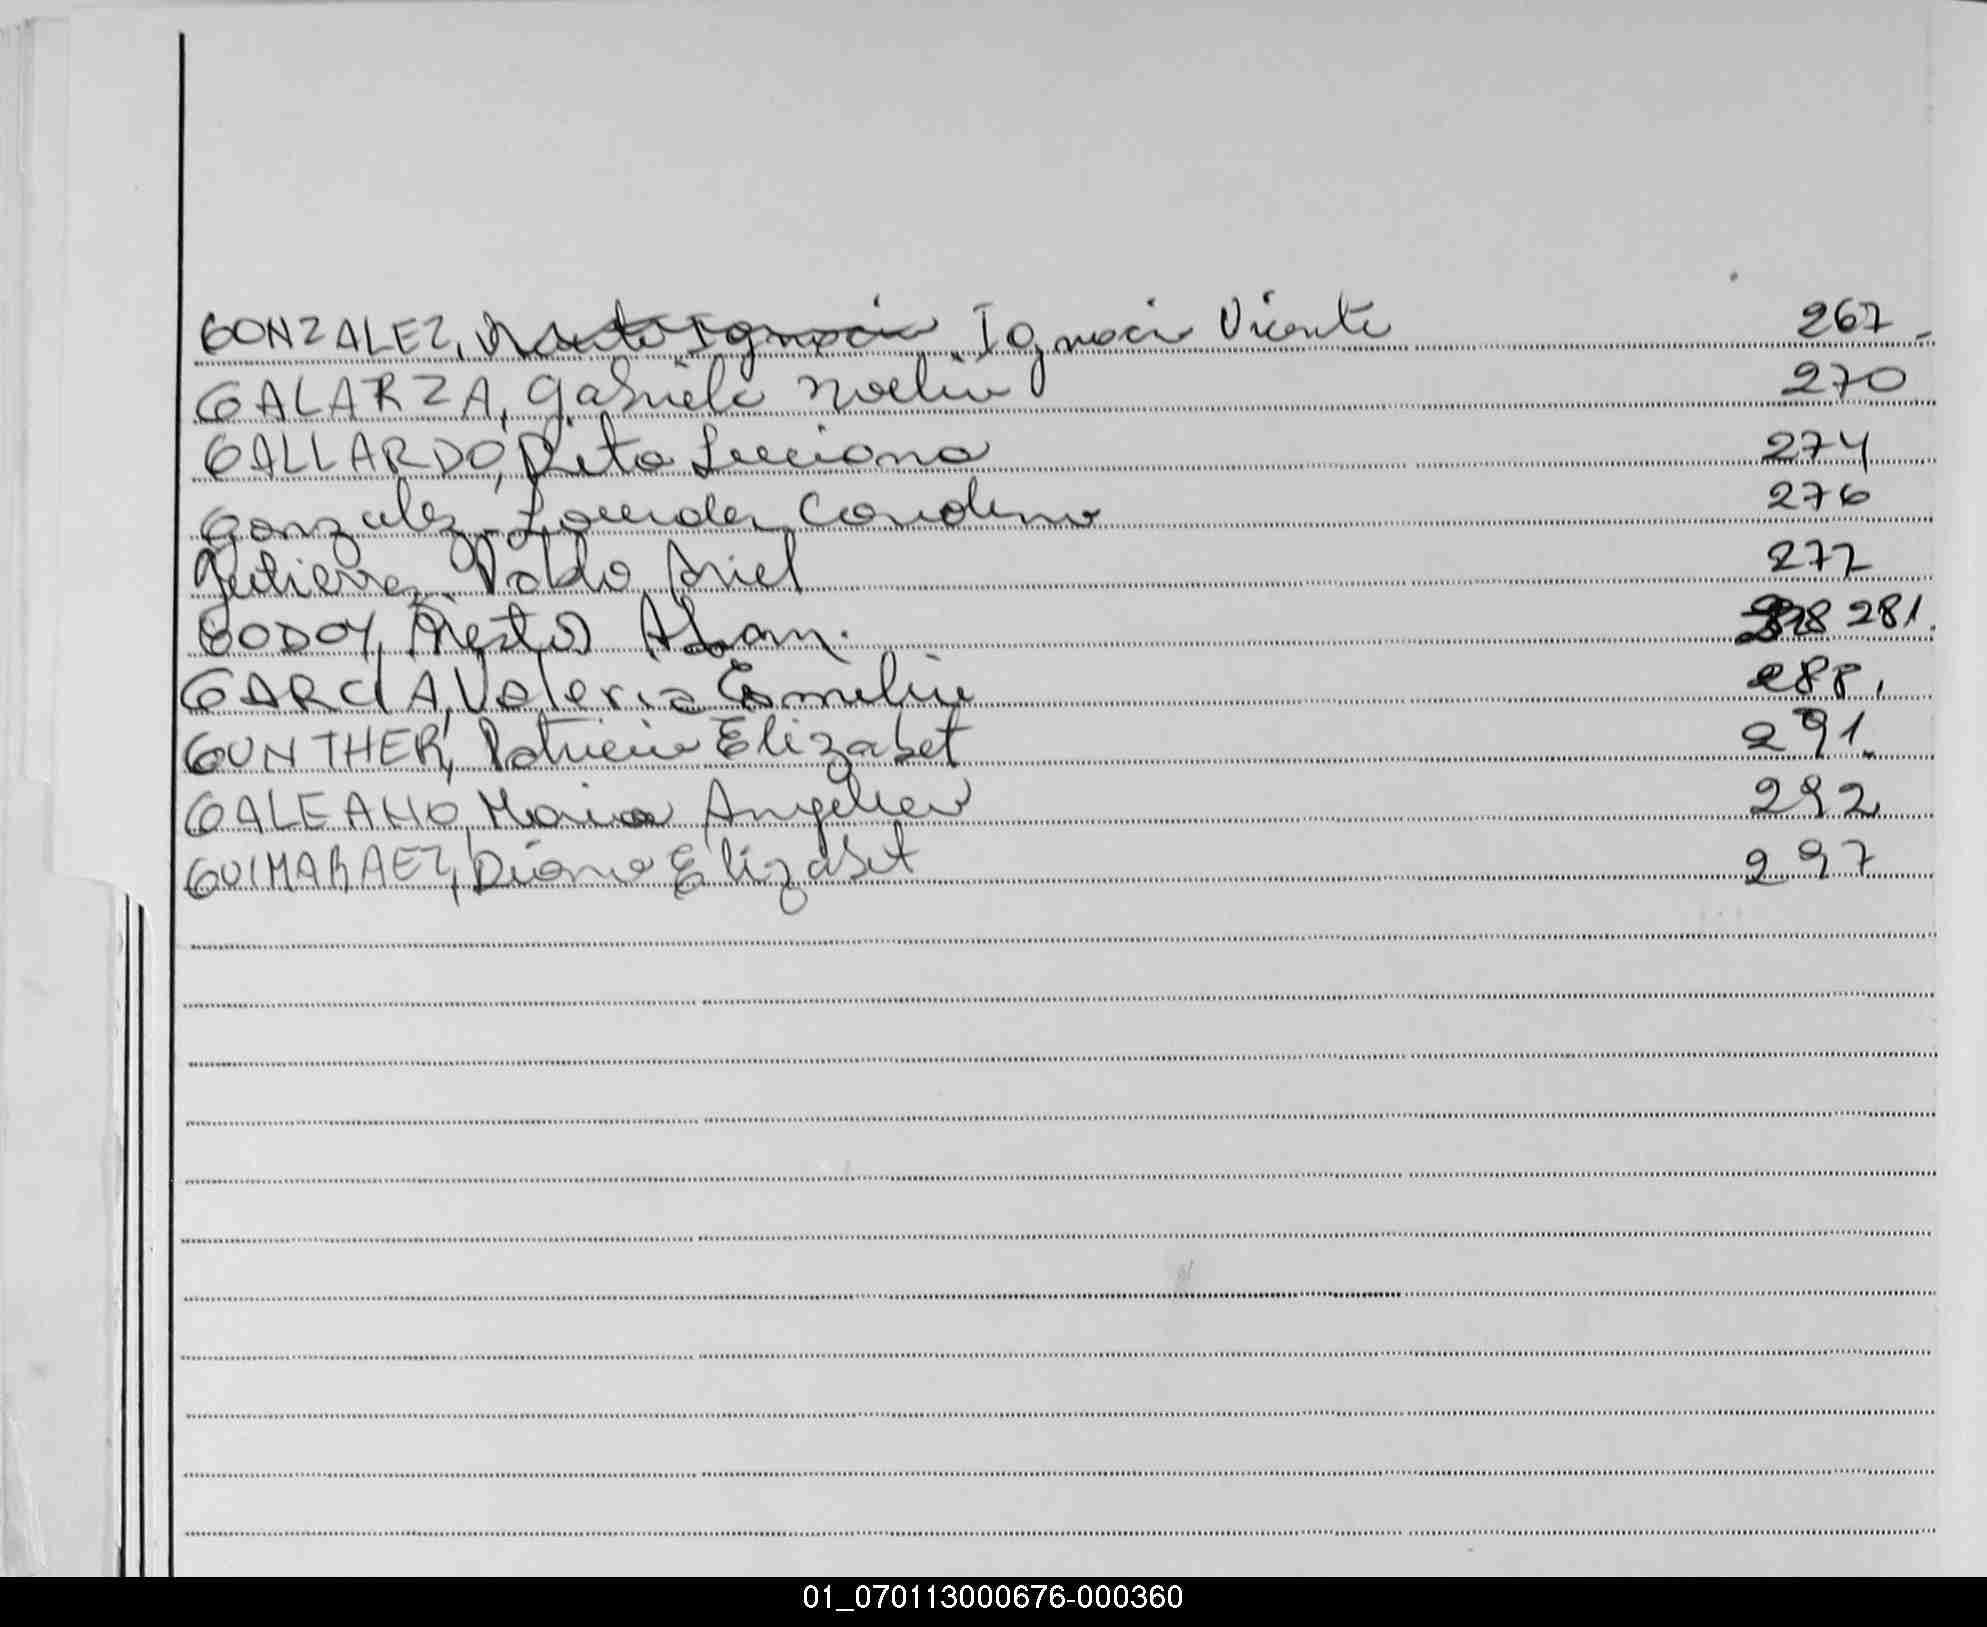 GONZALEZ, Ignacio Vicente 267
GALARZA, Gabriela Noelia 270
GALLARDO, Rita Luciana 274
Gonzalez Lourdes Carolina 276
Gutierrez Pablo Ariel 277
GODOY, Nestor Alan. 281.
GARCIA, Valeria Emilia 288.
GUNTHER, Patricia Elizabet 291.
GALEANO, Maria Angelica 292
GUIMARAEZ, Diana Elizabet 297
01_070113000676-000360